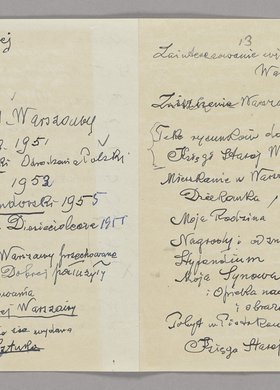 ej
Warszawy
1951
Odrodzenia Polski
1953
1955
Dziesięciolecia 1955
Warszawy przechowane
Dobrej pamięci
ej Warszawy
wydawa
Sztuka
13
Zainteresowanie
Wa
Zniszczenie Warsz
Teka rysunków do
Księgi Starej W
Mieszkanie w Warsz
Dziekanka /
Moja Rodzina
Nagrody i
Stypendium
Moja Synowa
i Opieka na
i obraz
Pobyt w Piotrkow
Księga Starej